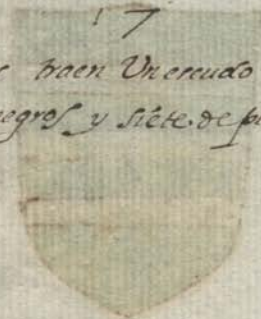 17
traen Un escudo
negros y siete de